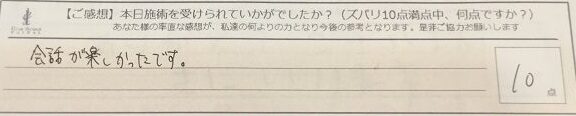 【ご感想】本日施術を受けられていかがでしたか？（ズバリ10点満点中、何点ですか？）
あなた様の率直な感想が、私達の何よりの力となり今後の参考となります。是非ご協力お願いします
会話が楽しかったです。
10
点